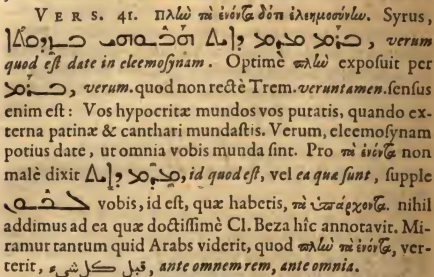 VERS. 41. πλὴν τὰ ἐνόντα δότε ἐλεημοσύνην. Syrus,
ܒܪܡ ܡܕܡ ܕܐܝܬ ܗܒܘܗܝ ܒܙܕܩܬܐ, verum
quod est date in eleemosynam. Optimè πλὴν exposuit per
ܒܪܡ, verum. quod non rectè Trem. veruntamen. sensus
enim est: Vos hypocritæ mundos vos putatis, quando ex-
terna patinæ & canthari mundastis. Verum, eleemosynam
potius date, ut omnia vobis munda sint. Pro τὰ ἐνόντα non
malè dixit ܡܕܡ ܕܐܝܬ, id quod est, vel ea quæ sunt, supple
ܠܟܘܢ vobis, id est, quæ habetis, τὰ ὑπάρχοντα. nihil
addimus ad ea quæ doctissimè Cl. Beza hîc annotavit. Mi-
ramur tantum quid Arabs viderit, quod πλὴν τὰ ἐνόντα, ver-
terit, قبل كل شيء, ante omnem rem, ante omnia.